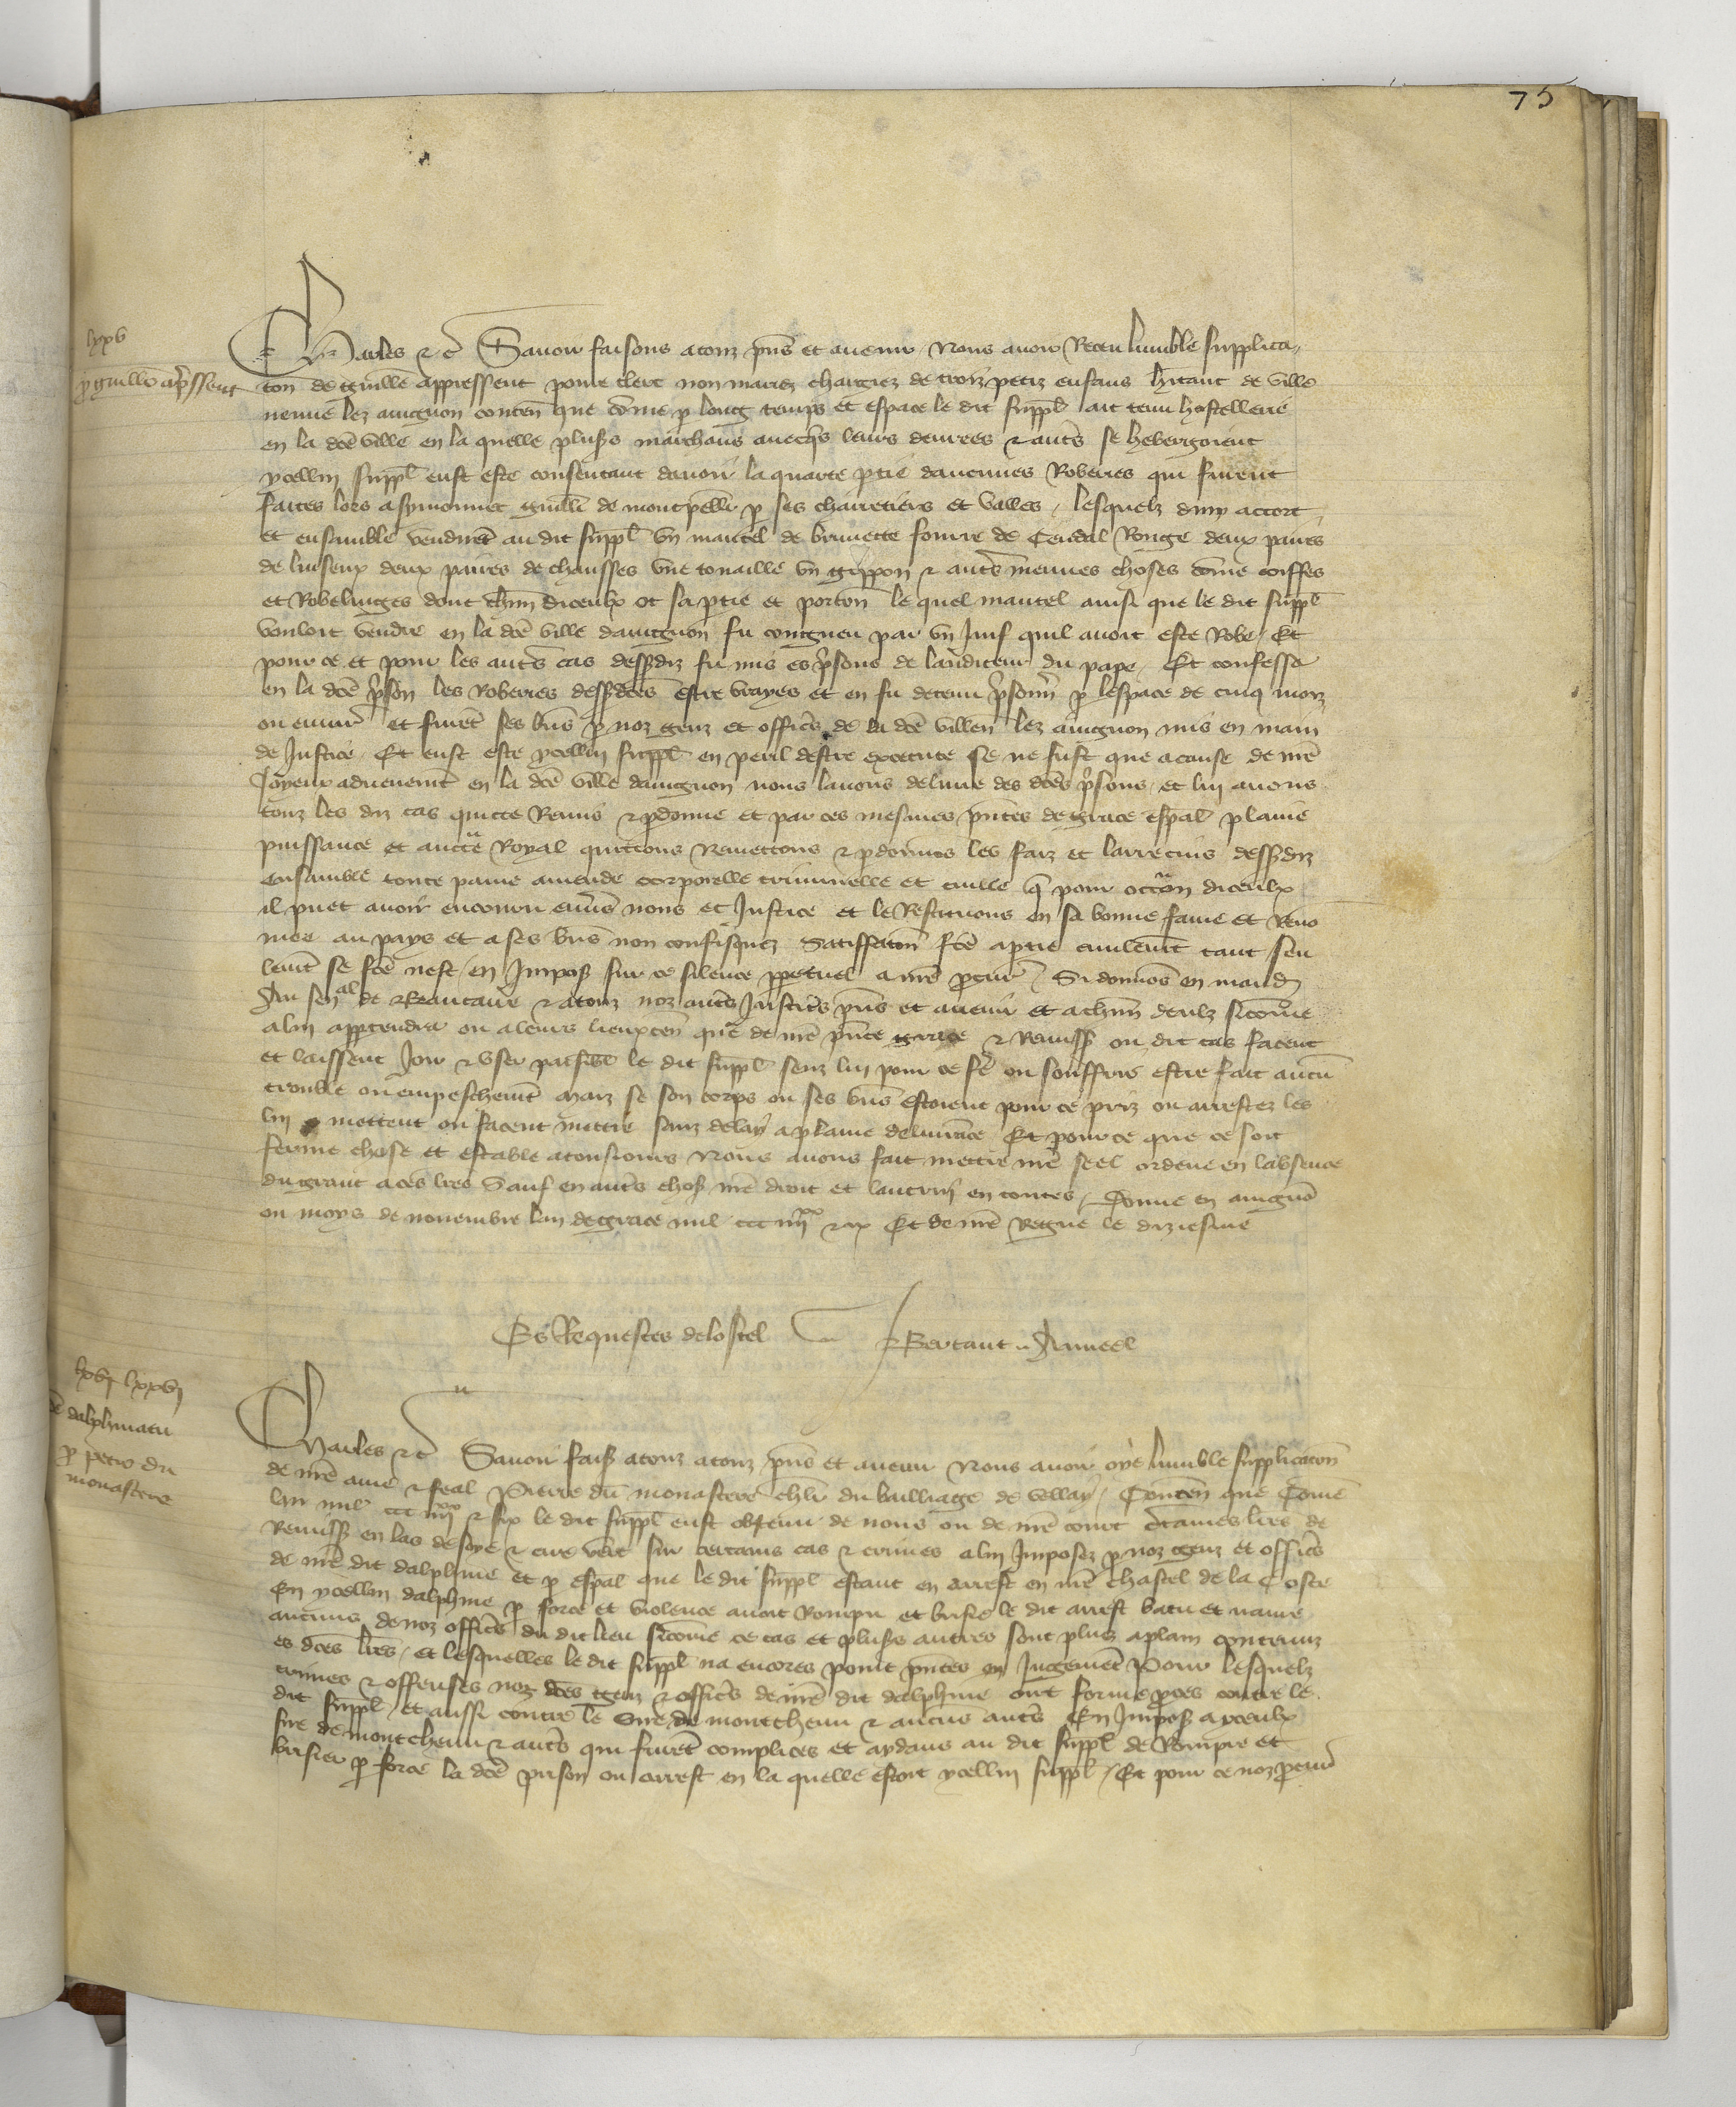 75
lxxv
p guille apressent
Charles etc Savoir faisons a touz pns et avenir Nous avoir Receu lumble supplica
cion de guille appressent povre clerc non mariez chargiez de trois petiz enfans hitant de ville
neuve lez avignon conten que come p long temps et espace le dit suppl ait tenu hostellerie
en la dce ville en la quelle pluss marchans avecqs leurs denrees et auts se hebergoient
ycellui suppl eust este consentant davoir la quarte ptie daucunes Roberies qui furent
faictes lors a symonnet guille de montpellr p ses charretiers et valles lesquelz dun accort
et ensamble vendiret au dit suppl un mantel de brunette fourre de Cendal Rouge deux paires
de linseux deux paires de chausses une touaille un gippon et auts menues choses come coiffes
et Robelinges dont chun diceulx ot sa ptie et porcon le quel mantel ainsi que le dit suppl
vouloit vendre en la dce ville davignon fu congneu par un Juif quil avoit este Robe Et
pour ce et pour les auts cas dessdiz fu mis es psons de lauditeur du pape Et confessa
en la dce pson les Roberies dessdces estre vrayes et en fu detenu psonn p lespace de cinq moiz
ou envir et furet ses bns p noz genz et offics de la dce villen lez avignon mis en main
de Justice Et eust este ycellui suppl en peril destre execute se ne fust que a cause de nre
Joyeux advenemt en la dce ville davignon nous lavons delivre des dces psons et lui avons
touz les diz cas quitte Remis et pdonne et par ces mesmes pntes de grace espal plaine
puissance et aucte Royal quittons Remettons et pdonnos les faiz et larrecins dessdiz
ensamble toute paine amende corporelle criminelle et civille q pour occon diceulx
il puet avoir encouru envs nous et Justice et le Restituons en sa bonne fame et Reno
mee au pays et a ses bns non confisquez Satisfaccon fce a ptie civilemt tant seu
lemt se fce nest en Imposs sur ce silence ppetuel a nre pcur Si donnos en mand
Au senal de Beaucaire et a touz noz auts Justics pns et avenir et a chun deulz sicome
a lui apptendra ou a leurs lieuxten que de nre pnte grace et Remiss ou dit cas facent
et laissent Joir et user paisible le dit suppl senz lui pour ce fe ou souffrir estre fait aucu
trouble ou empeschemt Maiz se son corps ou ses bns estoient pour ce priz ou arrestez les
lui mettent ou facent mettre sanz delay a plaine delivrace Et pour ce que ce soit
ferme chose et estable a tousiours Nous avons fait mettre nre seel ordene en labsence
du grant a ces lres Sauf en auts choss nre droit et lautruy en toutes Donne en avigno
ou moys de novembre lan de grace mil ccc iiii xx et ix Et de nre Regne le diziesme
Es Requestes de lostel Bertaut Anneel
lxvj lxxvj
de dalphinatu
p petro du
monastere
Charles etc Savoir faiss a touz a touz pns et avenir Nous avoir oye lumble supplicacon
de nre ame et feal Pierre du monastere chlr du bailliage de vellay Conten que Come
lan mil ccc iiii xx et six le dit suppl eust obtenu de nous ou de nre court ctaines lres de
Remiss en las de soye et cire vert sur certains cas et crimes a lui Imposez p noz genz et offics
de nre dit dalphine et p espal que le dit suppl estant en arrest en nre chastel de la Coste
En ycellui dalphine p force et violence avoit Rompu et brisie le dit arrest batu et navre
aucuns de noz offics du dit lieu sicome ce cas et pluss autres sont plus a plain contenuz
es dces lres Et lesquelles le dit suppl na encores point pntes en Jugement Pour lesquelz
crimes et offenses noz dces genz et offics de nre dit dalphine ont forme pces contre le
dit suppl et aussi contre le Sire de montchenu et aucus auts En Imposs a yceulx
sire de montchenu et auts qui furet complices et aydans au dit suppl de Rompre et
brisier p force la dce prison ou arrest en la quelle estoit ycellui suppl Et pour ce noz pcur